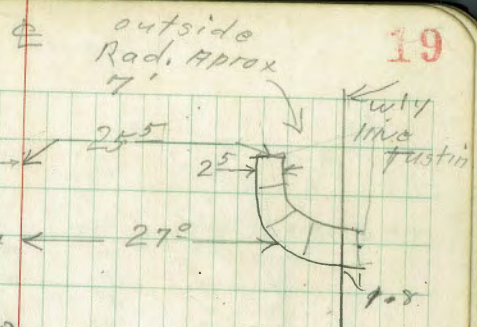 ℄ outside 19
Rad. Aprox
7'
wly
line
Tustin
25⁵
2⁵
27⁰
1.8